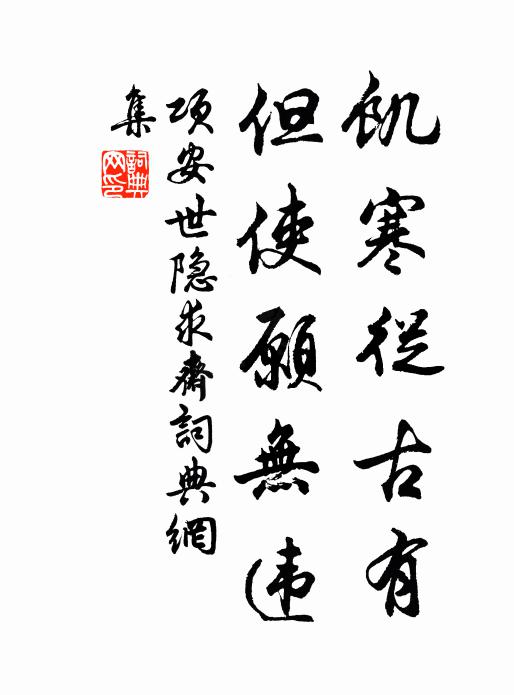 飢寒從古有
但使願無違
項安世隐求齋詞典網
集
詞典网印